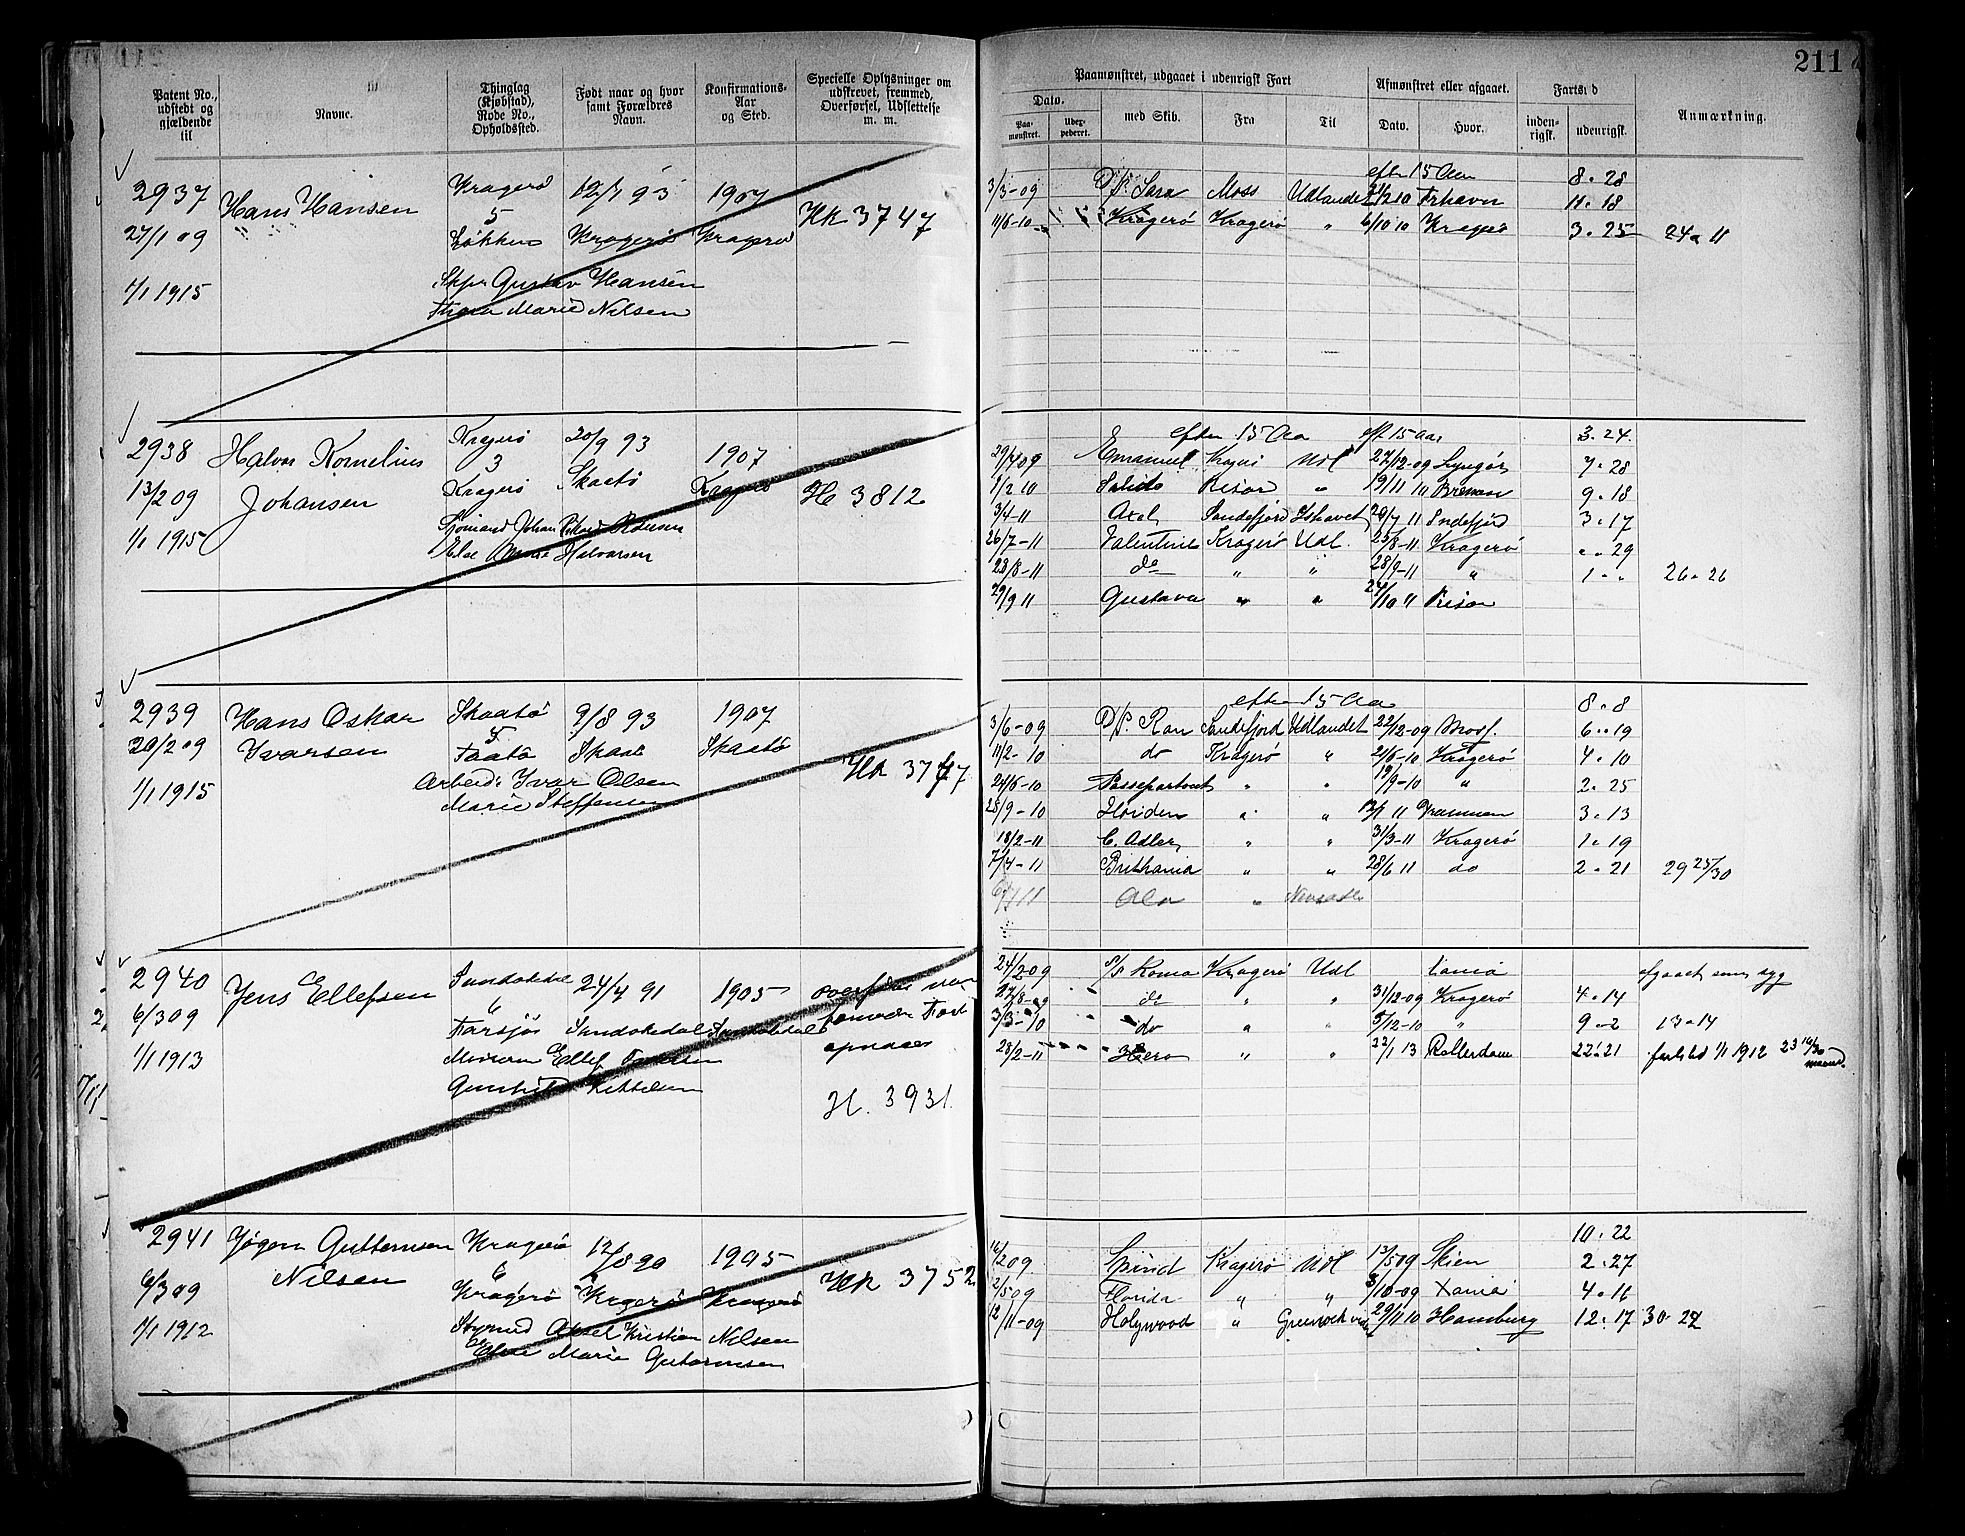 211
Patent No., udstedt og gjældende til
Navne.
Thinglag (Kjøbstad), Rode No., Opholdssted.
Født naar og hvor samt Forældres Navn.
Konfirmations-Aar og Sted.
Specielle Oplysninger om udskrevet, fremmed, Overførsel, Udslettelse m. m.
Paamønstret, udgaaet i udenrigsk Fart
Afmønstret eller afgaaet.
Fartstid
Anmærkning.
Dato.
Paa-mønstret.
Udex-pederet.
med Skib.
Fra
Til
Dato.
Hvor.
inden-rigsk.
udenrigsk.
2937 Hans Hansen Kragerø 12/7 93 1907
27/1 09 5 Hk 3747
Løkken Kragerø Kragerø
1/1 1915 Skpr Gustav Hansen
Marie Nilsen
efter 15 Aar 8. 28
3/3-09 D/S. Sara Moss Udlandet Frhavn 11. 18
11/6-10 Kragerø Kragerø " 6/10 10 Kragerø 3. 25 24. 11
2938 Halvor Kornelius Kragerø 20/9 93 1907
13/2 09 Johansen 3 Skaatø Kragerø H 3812.
Kragerø
1/1 1915 Sjømand Johan
Else Marie Halvorsen
efter 15 Aar eft 15 Aar 3. 24.
29/4 09 Emanuel Kragerø Udl 27/12-09 Lyngør 7. 28
1/2 10 Risør " 19/11 10 Bremen 9. 18
3/4-11 Axel Sandefjord Ishavet 20/7 11 Sndefjord 3. 17
26/7-11 Valentine Kragerø Udl. 25/8-11 Kragerø ". 29
23/8-11 do " " 28/9-11 " 1. " 26. 26
29/9 11 Gustava " " 24/10 11 Risør
2939 Hans Oskar Skaatø 9/8 93 1907
20/2 09 Ivarsen 4 Skaatø Skaatø
Taatø Hk 3767
1/1 1915 Arbeids Ivar Olsen
Marie Steffensen
efter 15 Aar 8. 8
3/6-09 D/S. Ran Sandefjord Udlandet 22/12-09 6. 19
11/2-10 do Kragerø " 21/6-10 Kragerø 4. 10
24/6-10 Passepartout " " 19/9-10 " 2. 25
25/9-10 " " Drammen 3. 13
18/2-11 C. Adler " " 31/3-11 Kragerø 1. 19
7/4-11 Brithania " " 28/6 11 do 2. 21 29 25/30
"
2940 Jens Ellefsen Sandøkedal 24/4 91 1905 overføres
6/3 09 6 Fart
Farsjø Sandøkedal Sandøkedal
1/1 1913 Ellef
Kittilsen H. 3931
24/2 09 S/S Roma Kragerø Udl Xania afgaaet som syg
27/8-09 do " " 31/12-09 Kragerø 4. 14
3/3-10 do " " 5/12-10 " 9. 2 13. 14
28/2-11 Hero " " 22/1 13 Rotterdam 22. 21 fartstid 1/1 1912 23 16/30 maaned.
2941 Jørgen Guttormsen Kragerø 12/8 90 1905
6/3 09 Nilsen 6 Hk 3752
Kragerø Kragerø Kragerø
1/1 1912 Styrmd Aksel Kristian Nilsen
Else Marie Gutormsen
10. 22
16/2 09 Spind Kragerø Udl 13/5 09 Skien 2. 27
2/5 09 Florida " " 3/10-09 Xania 4. 16
12/11-09 Holywood " Greenock 29/11 10 Hamburg 12. 17 30. 22